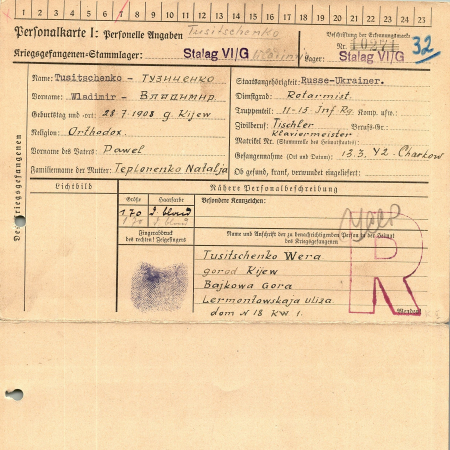 1 2 3 4 5 6 7 8 9 10 11 12 13 14 15 16 17 18 19 20 21 22 23 24 25
Personalkarte I: Personelle Angaben Tusitschenko
Beschriftung der Erkennungsmarke
Nr. 10271 32
Kriegsgefangenen-Stammlager: Stalag VI/G
Lager: Stalag VI/G
Des Kriegsgefangenen
Name: Tusitschenko - Тузиченко
Staatsangehörigkeit: Russe-Ukrainer.
Vorname: Wladimir - Владимир
Dienstgrad: Rotarmist.
Truppenteil: 11-15 Inf Rg. Komp. usw.:
Geburtstag und -ort: 28.7-1908 g. Kijew
Zivilberuf: Tischler Berufs-Gr.:
Klaviermeister
Religion: Orthodox.
Matrikel Nr. (Stammrolle des Heimatstaates):
Vorname des Vaters: Pawel
Gefangennahme (Ort und Datum): 13.3.42. Charkow
Familienname der Mutter: Teplorenko Natalja
Ob gesund, krank, verwundet eingeliefert:
Lichtbild
Nähere Personalbeschreibung
Größe Haarfarbe Besondere Kennzeichen:
1.70 d. blond
Fingerabdruck
des rechten! Zeigefingers
Name und Anschrift der zu benachrichtigenden Person in der Heimat
des Kriegsgefangenen
R
Tusitschenko Wera
gorod Kijew
Bajkowa Gora
Lermontowskaja uliza
dom N 18 KW 1.